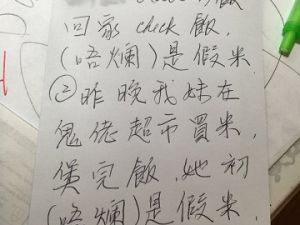 回家 check 飯,
(唔爛)是假米.
②昨晚我妹在
鬼佬超市買米,
煲完飯,她初
(唔爛)是假米.